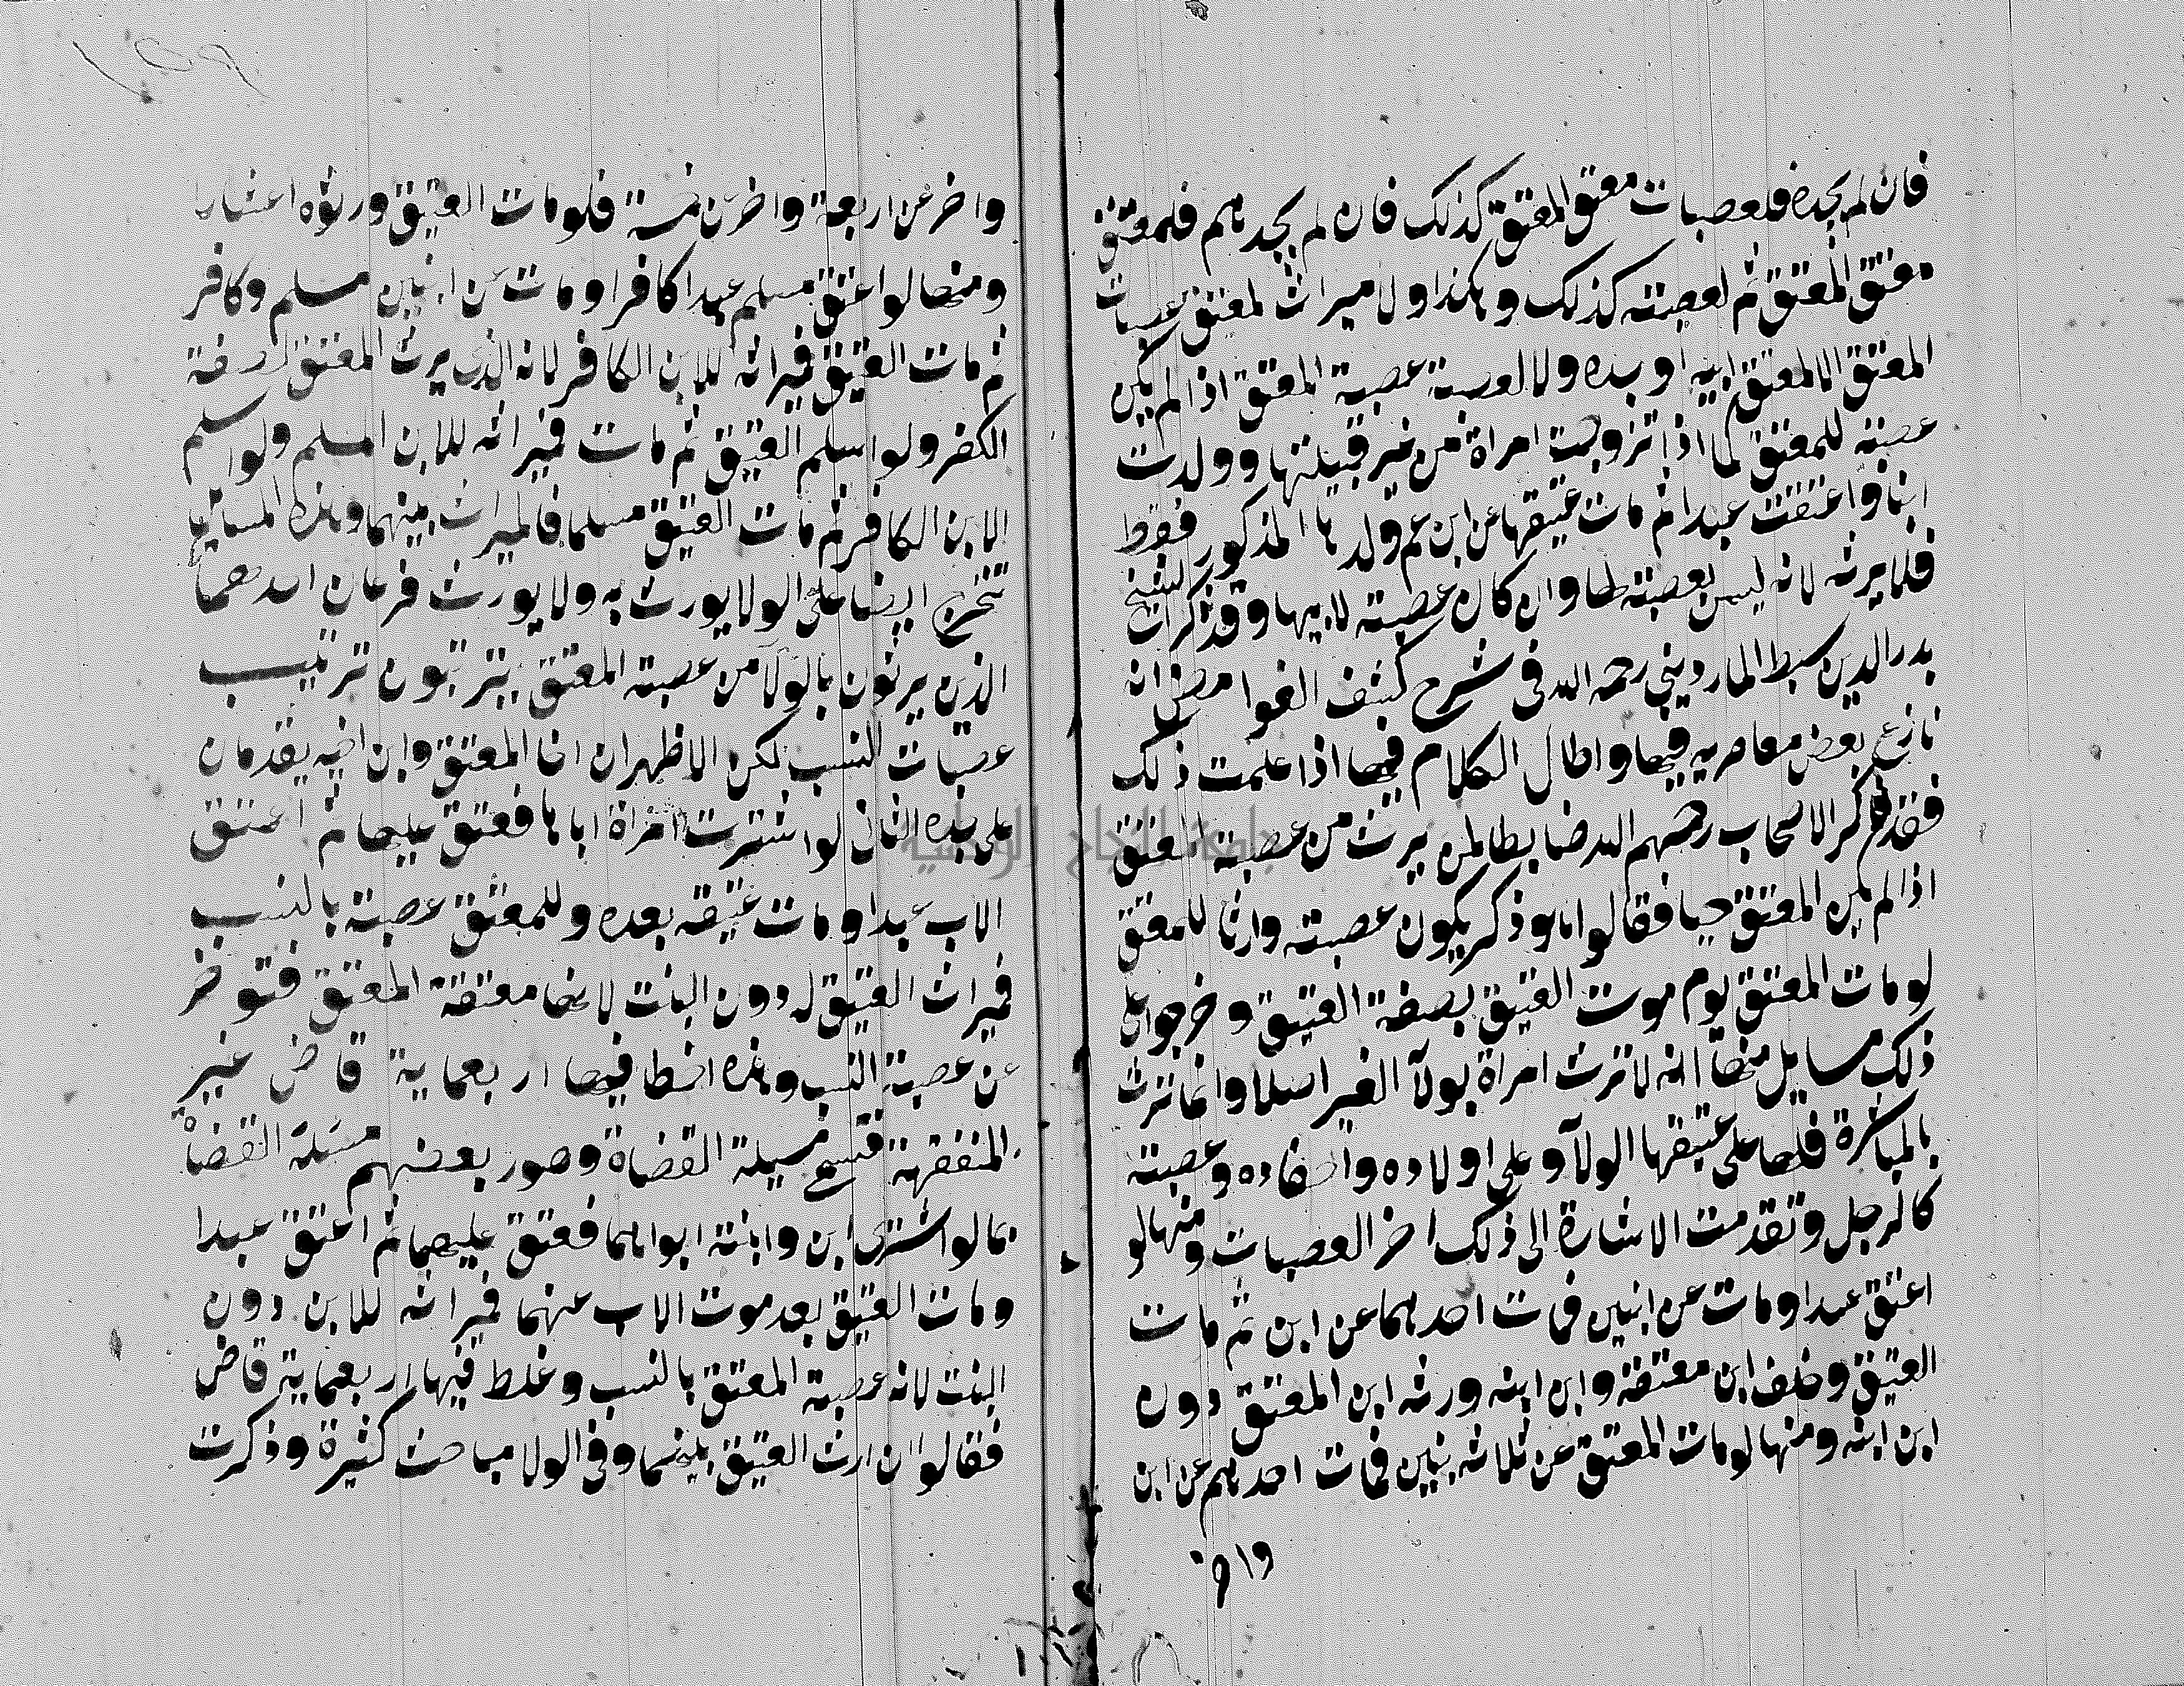 فان لم يجده فلعصبات معتق المعتق كذلك فان لم يجدهم فلمعتق
معتق المعتق ثم لعصبته كذلك وهكذا ولا ميراث لمعتق عصبات
المعتق الا لمعتق ابيه او جده ولا لعصبة عصبة المعتق اذا لم يكن
عصبة للمعتق كما اذا تزوجت امراة من غير قبيلتها وولدت
ابنا واعتقت عبدا ثم مات عتيقها عن ابن عم ولدها المذكور فقط
فلا يرثه لانه ليس بعصبة لها وان كان عصبة لابيها وقد ذكرت الشيخ
بدر الدين سبط المارديني رحمه الله في شرح كشف الغوامض انه
نازع بعض معاصريه فيها واطال الكلام فيها اذا علمت ذلك
فقد ذكر الاصحاب رحمهم الله ضابطا لمن يرث من عصبة المعتق
اذا لم يكن المعتق حيا فقالوا هو ذكر يكون عصبة وارثا للمعتق
لو مات المعتق يوم موت العتيق بصفة العتيق وخرجوا على
ذلك مسايل منها انه لا ترث امراة بولآ الغير اصلا وانما ترث
بالمباشرة فلها على عتيقها الولآ وعلى اولاده واحفاده وعصبته
كالرجل وتقدمت الاشارة الى ذلك اخر العصبات ومنها لو
اعتق عبدا ومات عن ابنين فمات احدهما عن ابن ثم مات
العتيق وخلف ابن معتقه وابن ابنه ورثه ابن المعتق دون
ابن ابنه ومنها لو مات المعتق عن ثلاثه بنين فمات احدهم عن ابن
واخر
واخر عن اربعة واخر عن خمسة فلو مات العتيق ورثوه اعشارا
ومنها لو اعتق مسلم عبدا كافرا ومات عن ابنين مسلم وكافر
ثم مات العتيق فميراثه للابن الكافر لانه الذي يرث المعتق بصفة
الكفر ولو اسلم العتيق ثم مات فميراثه للابن المسلم ولو اسلم
الابن الكافر ثم مات العتيق مسلما فالميراث بينهما وهذه المسايل
تتخرج ايضا على الولا يورث به ولا يورث فرعان احدهما
الذين يرثون بالولآ من عصبة المعتق يترتبون ترتيب
عصبات النسب لكن الاظهر ان اخا المعتق وابن اخيه يقدمان
على جده الثاني لو اشترت امراة اباها فعتق عليها ثم اعتق
الاب عبدا ومات عتيقه بعده وللمعتق عصبة بالنسب
فميراث العتيق له دون البنت لانها معتقة المعتق فتوخر
عن عصبة النسب وهذه اخطا فيها اربعماية قاض غير
المتفقهة فتسمى مسيلة القضاة وصور بعضهم مسئلة القضاة
بما لو اشترى ابن وابنة ابواهما فعتق عليهما ثم اعتق عبدا
ومات العتيق بعد موت الاب عنهما فميراثه للابن دون
البنت لانه عصبة المعتق بالنسب وغلط فيها اربعماية قاض
فقالوا ان ارث العتيق بينهما وفي الولا مباحث كثيرة وذكرت